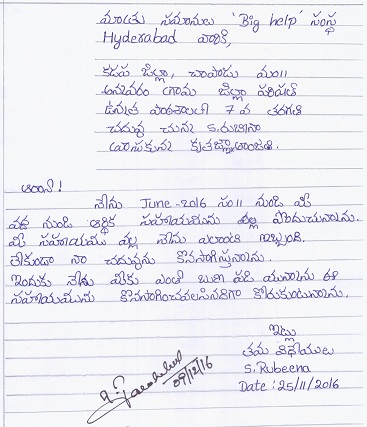 మాతృ సమానులు 'Big help' సంస్థ
Hyderabad వారికి,
కడప జిల్లా, చాపాడు మం॥
అనవరం గ్రామ జిల్లా పరిషత్
ఉన్నత పాఠశాలలో 7 వ తరగతి
చదువు చున్న S.రుబీనా
వ్రాసుకున్న కృతజ్ఞతాంజలి.
ఆంటీ!
నేను June-2016 సం॥ నుండి మీ
వద్ద నుండి ఆర్థిక సహాయమును పొందుచున్నాను.
మీ సహాయము వల్ల నేను ఎలాంటి ఇబ్బంది.
లేకుండా నా చదువును కొనసాగిస్తున్నాను.
ఇందుకు నేను మీకు ఎంతో ఋణ పడి యున్నాను ఈ
సహాయమును కొనసాగించవలసినదిగా కోరుకుంటున్నాను.
ఇట్లు
తమ విధేయులు
S.Rubeena
Date : 25/11/2016
09/12/16